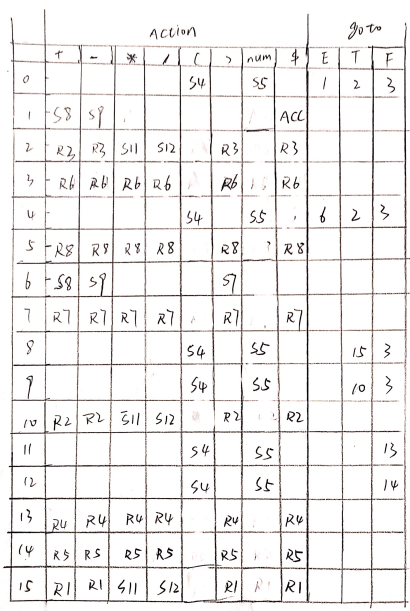 Action goto
+ - * / ( ) num $ E T F
0 S4 S5 1 2 3
1 S8 S9 ACC
2 R3 R3 S11 S12 R3 R3
3 R6 R6 R6 R6 R6 R6
4 S4 S5 6 2 3
5 R8 R8 R8 R8 R8 R8
6 S8 S9 S7
7 R7 R7 R7 R7 R7 R7
8 S4 S5 15 3
9 S4 S5 10 3
10 R2 R2 S11 S12 R2 R2
11 S4 S5 13
12 S4 S5 14
13 R4 R4 R4 R4 R4 R4
14 R5 R5 R5 R5 R5 R5
15 R1 R1 S11 S12 R1 R1